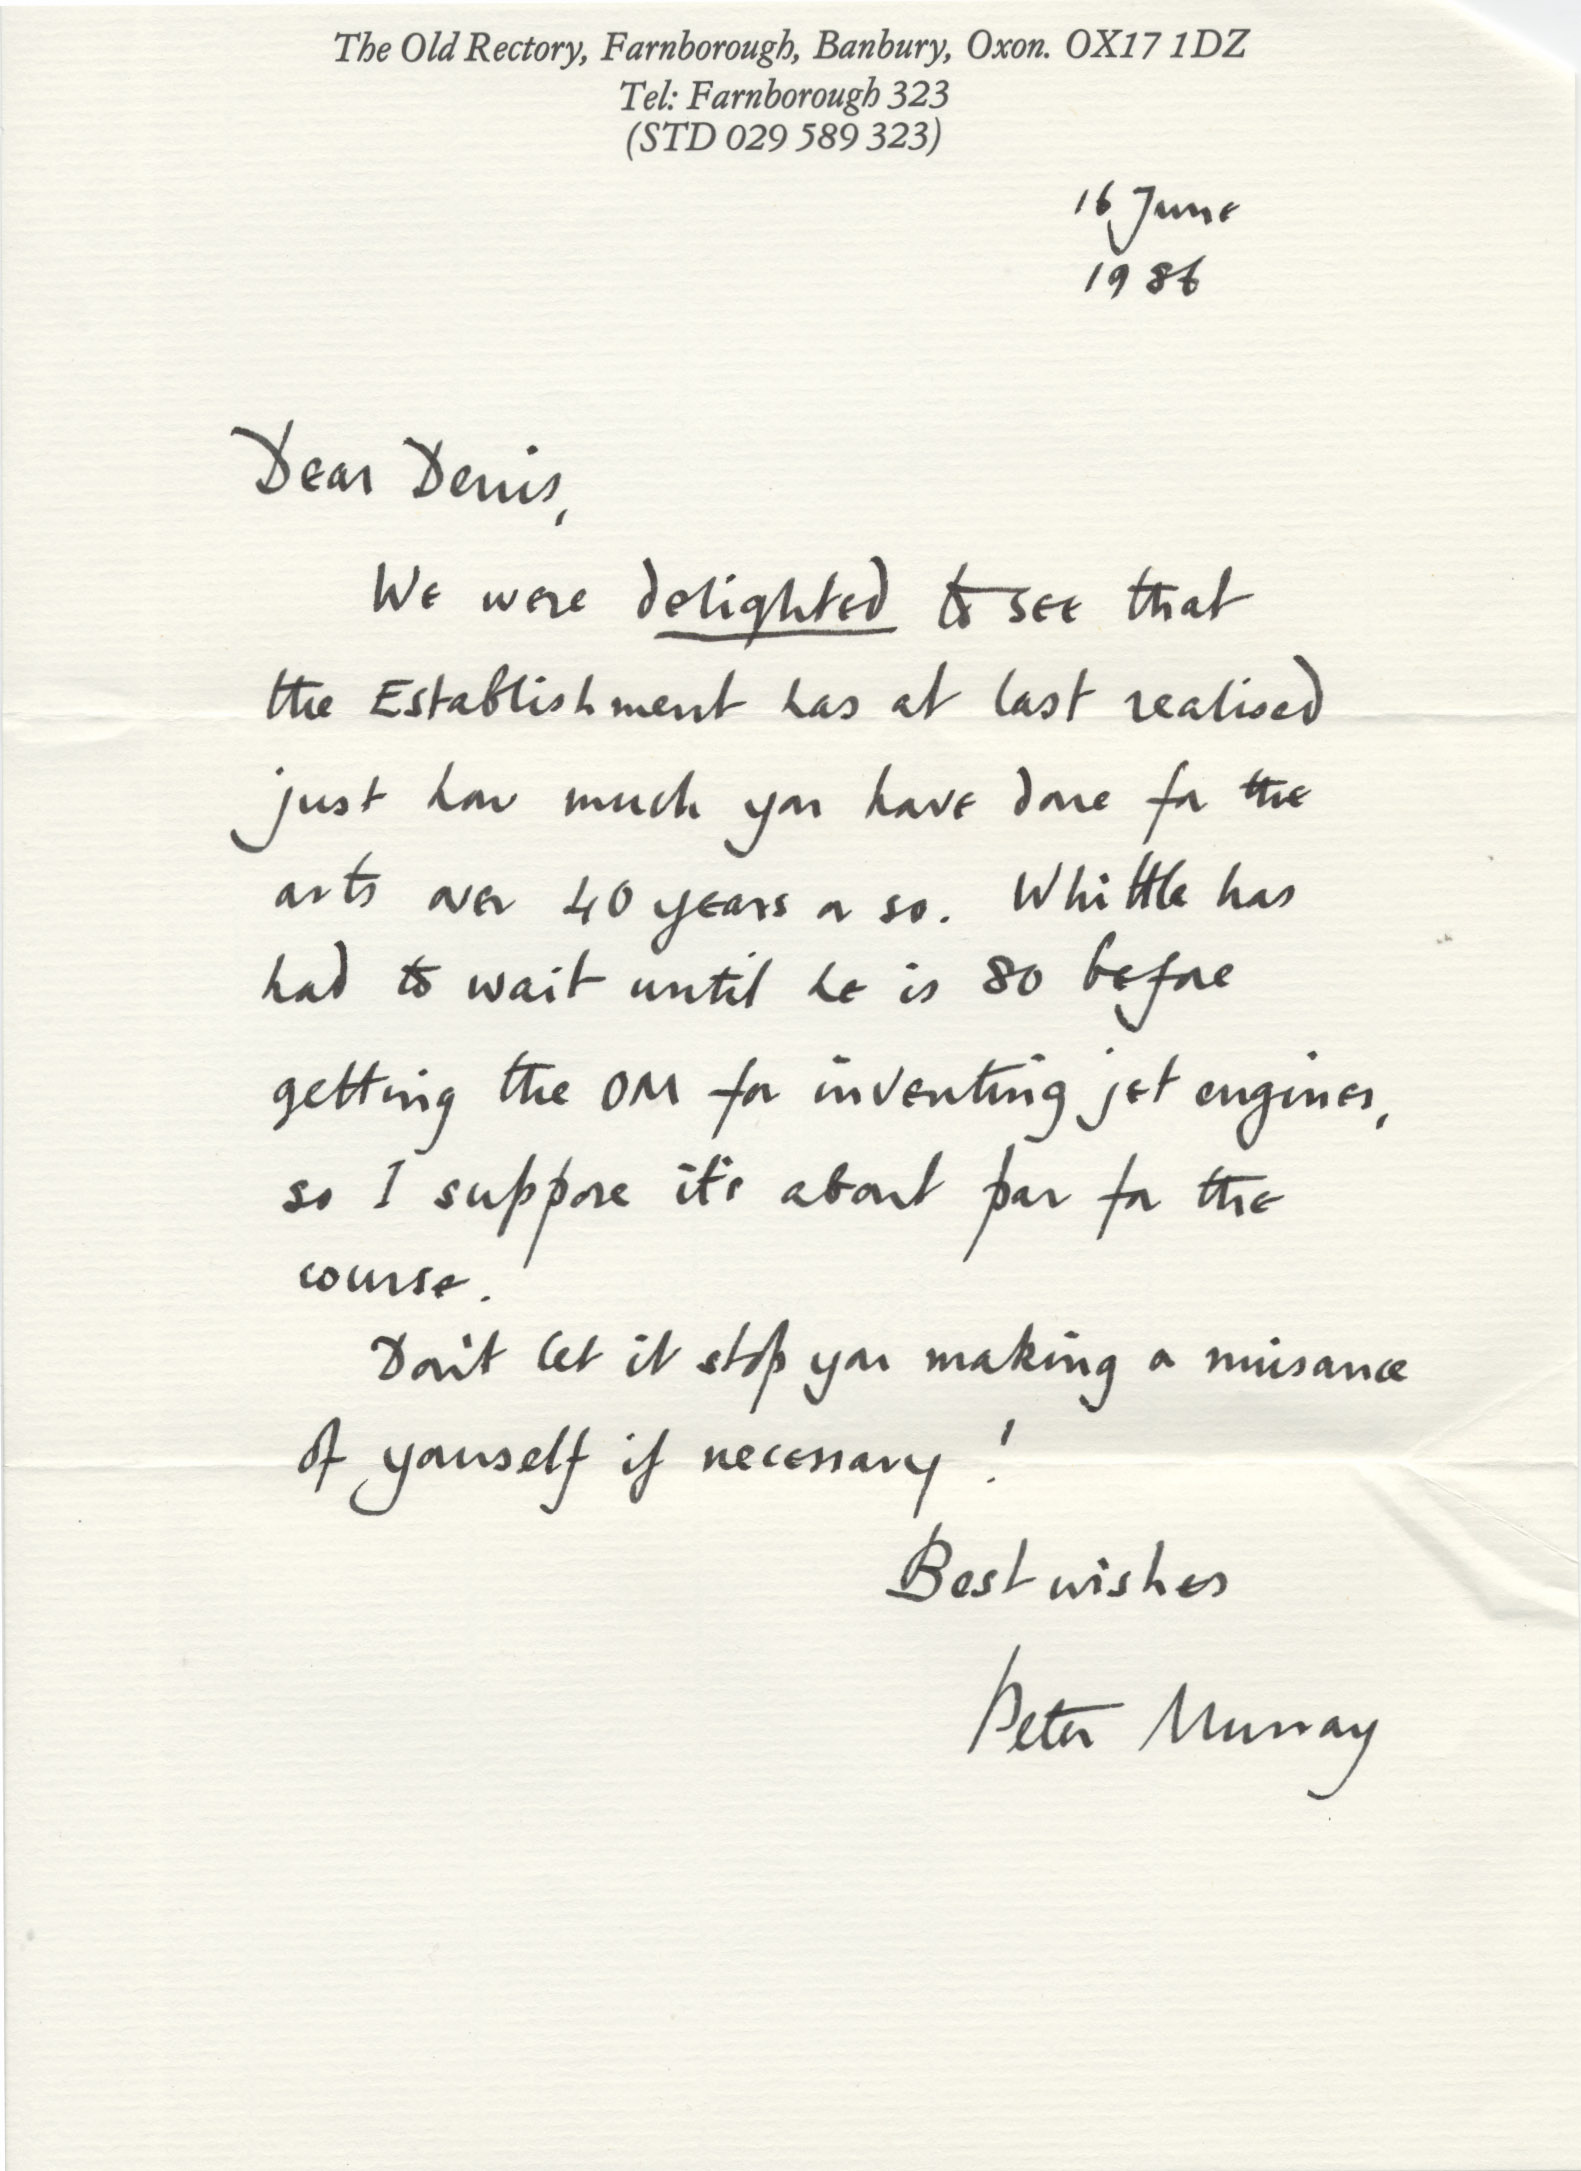 The Old Rectory, Farnborough, Banbury, Oxon. OX17 1DZ
Tel: Farnborough 323
(STD 029 589 323)
16 June
1986
Dear Denis,
We were delighted to see that
the Establishment has at last realised
just how much you have done for the
arts over 40 years or so. Whittle has
had to wait until he is 80 before
getting the OM for inventing jet engines,
so I suppose it's about par for the
course.
Don't let it stop you making a nuisance
of yourself if necessary!
Best wishes
Peter Murray